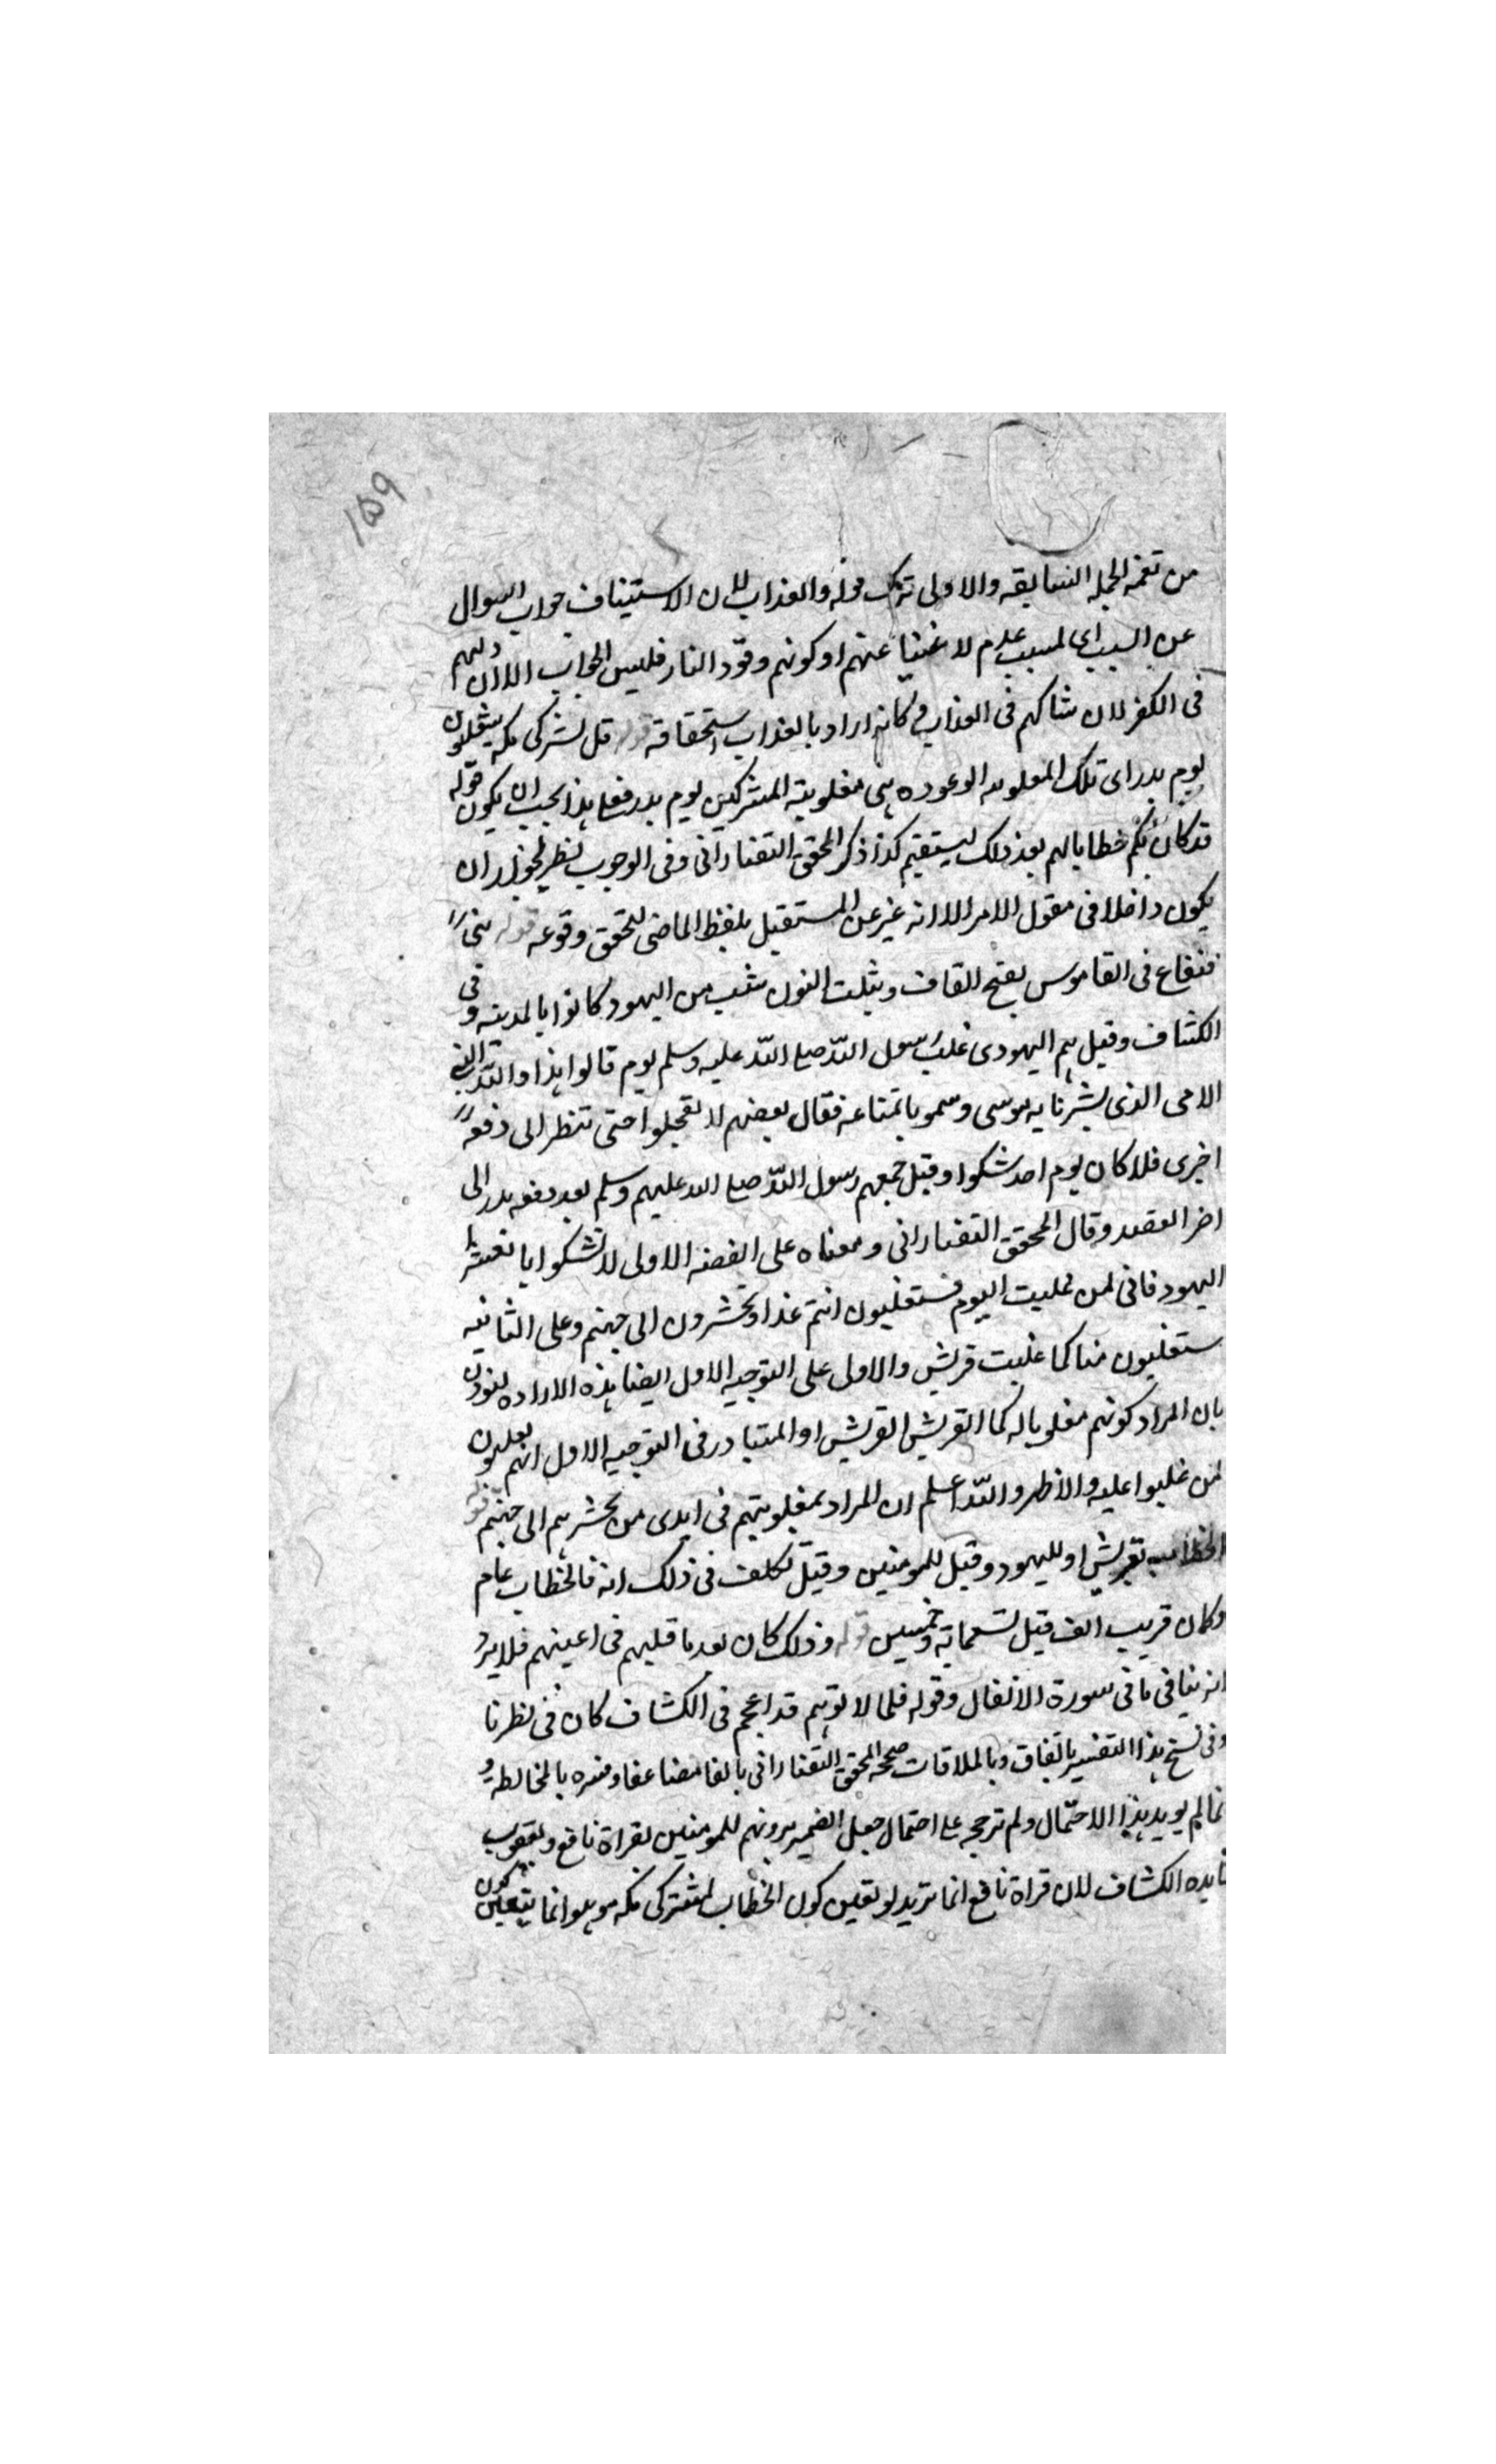 ١٥٩
من تتمه الجمله السابقه والاولى ترك قوله والعذاب لان الاستيناف جواب السوال
عن السبب اى لسبب عدم لا غنينا عنهم او كونهم وقود النار فليس الجواب الا ان دابهم
فى الكفر لان شاكهم فى العذاب و كانه اراد بالعذاب استحقاقه قوله قل لمشركى مكه ستغلبون
يوم بدر اى تلك المغلوبيه الوعوده هى مغلوبية المشركين يوم بدر فعلى هذا يجب ان يكون قوله
قد كان لكم خطابا لهم بعد ذلك ليستقيم كذا ذكر المحقق التفتازانى وفى الوجوب نظر لجواز ان
يكون داخلا فى مقول الامر الا انه عبر عن المستقبل بلفظ الماضى لتحقق وقوعه قوله بنى
قنقاع فى القاموس بفتح القاف وتثليث النون شعب من اليهود كانوا بالمدينه و فى
الكشاف وقيل هم اليهود فى غلب رسول الله صلى الله عليه وسلم يوم قالوا هذا والله النبى
الامى الذى بشرنا به موسى وهموا باتباعه فقال بعضهم لا تعجلوا حتى تنظر الى دفعه
اخرى فلا كان يوم احد شكوا وقيل جمعهم رسول الله صلى الله عليهم وسلم بعد دفعه بدر الى
اخر القصه وقال المحقق التفتازانى ومعناه على القصه الاولى لا تشكوا يا معشر
اليهود فانى لمن غلبت اليوم فستغلبون انتم غدا وتحشرون الى جهنم وعلى الثانيه
ستغلبون منا كما غلبت قريش والاولى على التوجيه الاول ايضا هذه الاراده
بان المراد كونهم مغلوبا له كما القريش القريش او المتبادر فى التوجيه الاول انهم يغلبون
لمن غلبوا عليه والاظهر والله اعلم ان المراد بمغلوبيتهم فى ايدى من يحشرهم الى جهنم قوله
الخطاب لقريش او لليهود وقيل للمومنين وقيل تكلف فى ذلك انه فالخطاب عام
وكان قريب الف قيل تسعمايه وخمسين قوله وذلك كان بعد ما قليهم فى اعينهم فلا يرد
انه ينافى ما فى سورة الانفال وقوله فلما لا توهم قد اعجم فى الكشاف كان فى نظرنا
وفى نسخ هذا التفسير بالفاق وبالملاقات صححه المحقق التفتازانى بالفا مضاعفا وفسره بالمخالطه و
مما لم يويد هذا الاحتمال ولم ترجحه على احتمال جعل الضمير يرونهم للمومنين بقراة نافع ويعقوب
تايده الكشاف لان قراة نافع انما تريد لو تعين كون الخطاب لمشتركى مكه هو هلو انما يتعين كون